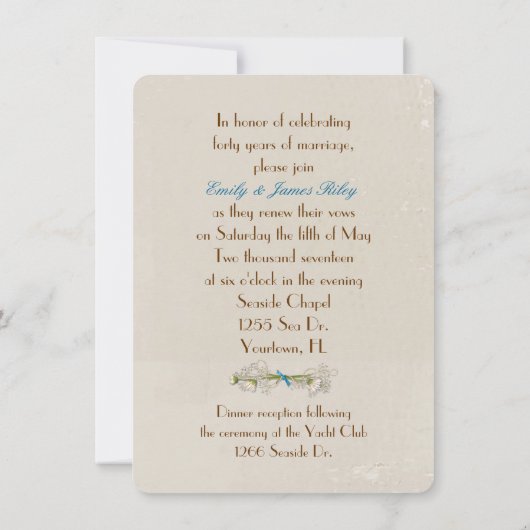 In honor of celebrating
forty years of marriage,
please join
Emily & James Riley
as they renew their vows
on Saturday the fifth of May
Two thousand seventeen
at six o'clock in the evening
Seaside Chapel
1255 Sea Dr.
Yourtown, FL
Dinner reception following
the ceremony at the Yacht Club
1266 Seaside Dr.